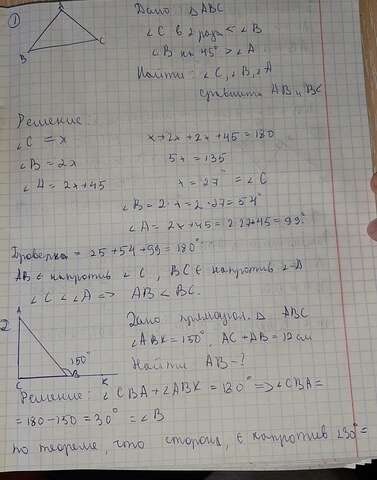 1 A Дано: △ABC
B C ∠C в 2 раза < ∠B
∠B на 45° > ∠A
Найти: ∠C, ∠B, ∠A
сравнить AB и BC
Решение
∠C = x x+2x+2x+45=180
∠B = 2x 5x = 135
∠A = 2x+45 x = 27° = ∠C
∠B = 2·x = 2·27=54°
∠A = 2x+45 = 2·27+45 = 99°
Проверка = 25+54+99=180°
AB ∈ напротив ∠C, BC ∈ напротив ∠A
∠C < ∠A => AB < BC.
2 A Дано прямоуг. △ ABC
∠ABK = 150°, AC + AB = 12 см
150° Найти AB-?
C B K
Решение: ∠CBA + ∠ABK = 180° => ∠CBA =
= 180 - 150 = 30° = ∠B
по теореме, что сторона, ∈ напротив ∠30° =